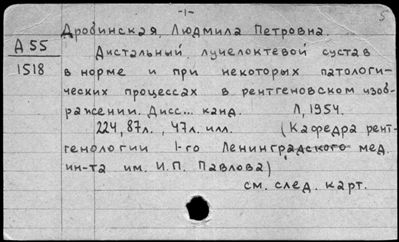 -1-
5
Дробинская, Людмила Петровна.
А 55
1518
Дистальный лучелоктевой сустав
в норме и при некоторых патологи-
ческих процессах в рентгеновском изоб-
ражении. Дисс... канд. Л, 1954.
224, 87л., 47л. илл. (Кафедра рент-
генологии 1-го Ленинградского мед.
ин-та им. И.П. Павлова)
см. след. карт.